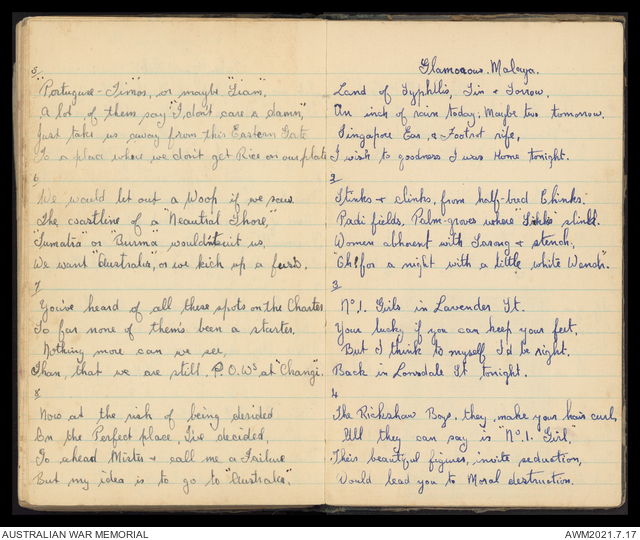 5/
"Portuguese-Timos", or maybe "Siam",
A lot of them say "I don't care a damn",
Just take us away from this Eastern Gate
To a place where we don't get Rice on our plate
6
We would let out a Woop if we saw
The coastline of a "Neautral Shore",
"Sumatra" or "Burma" wouldn't suit us,
We want "Australia", or we kick up a
7
You've heard of all these spots on the Charter
So far none of them's been a starter,
Nothing more can we see,
Than, that we are still P.O.Ws at "Changi".
8
Now at the risk of being derided
On the Perfect place, I've decided,
Go ahead Mister & call me a Failure
But my idea is to go to "Australia".
Glamorous. Malaya.
Land of Syphllis, Sin & Sorrow,
An inch of rain today, Maybe two tomorrow.
Singapore Ear, & Footrot rife,
I wish to goodness I was Home tonight.
2
Stinks & clinks, from half-bred Chinks.
Padi fields, Palm-groves where stink.
Women abhorent with Sarong & stench,
"Oh! for a night with a little white Wench".
3
No.1. Girls in Lavender St.
Your lucky if you can keep your feet,
But I think to myself I'd be right.
Back in Lonsdale St tonight.
4
The Rickshaw Boys, they make your hair curl,
All they can say is "No.1. Girl,"
Their beautiful figures, invite seduction,
Would lead you to Moral destruction.
AUSTRALIAN WAR MEMORIAL
AWM2021.7.17